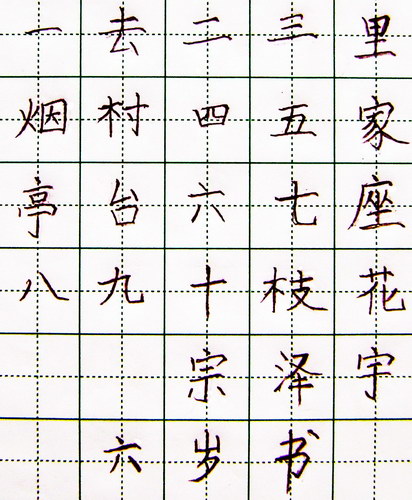 一去二三里
烟村四五家
亭台六七座
八九十枝花
宗泽宇
六岁书